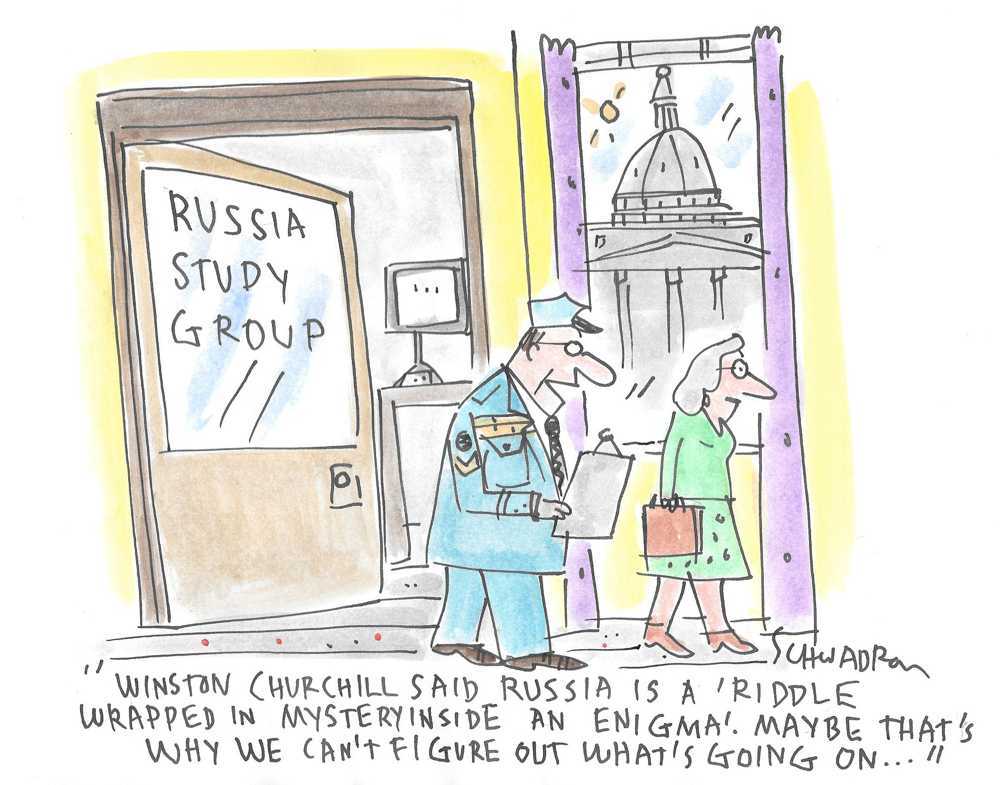 RUSSIA
STUDY
GROUP
SCHWADRON
"WINSTON CHURCHILL SAID RUSSIA IS A 'RIDDLE
WRAPPED IN MYSTERY INSIDE AN ENIGMA'. MAYBE THAT'S
WHY WE CAN'T FIGURE OUT WHAT'S GOING ON..."